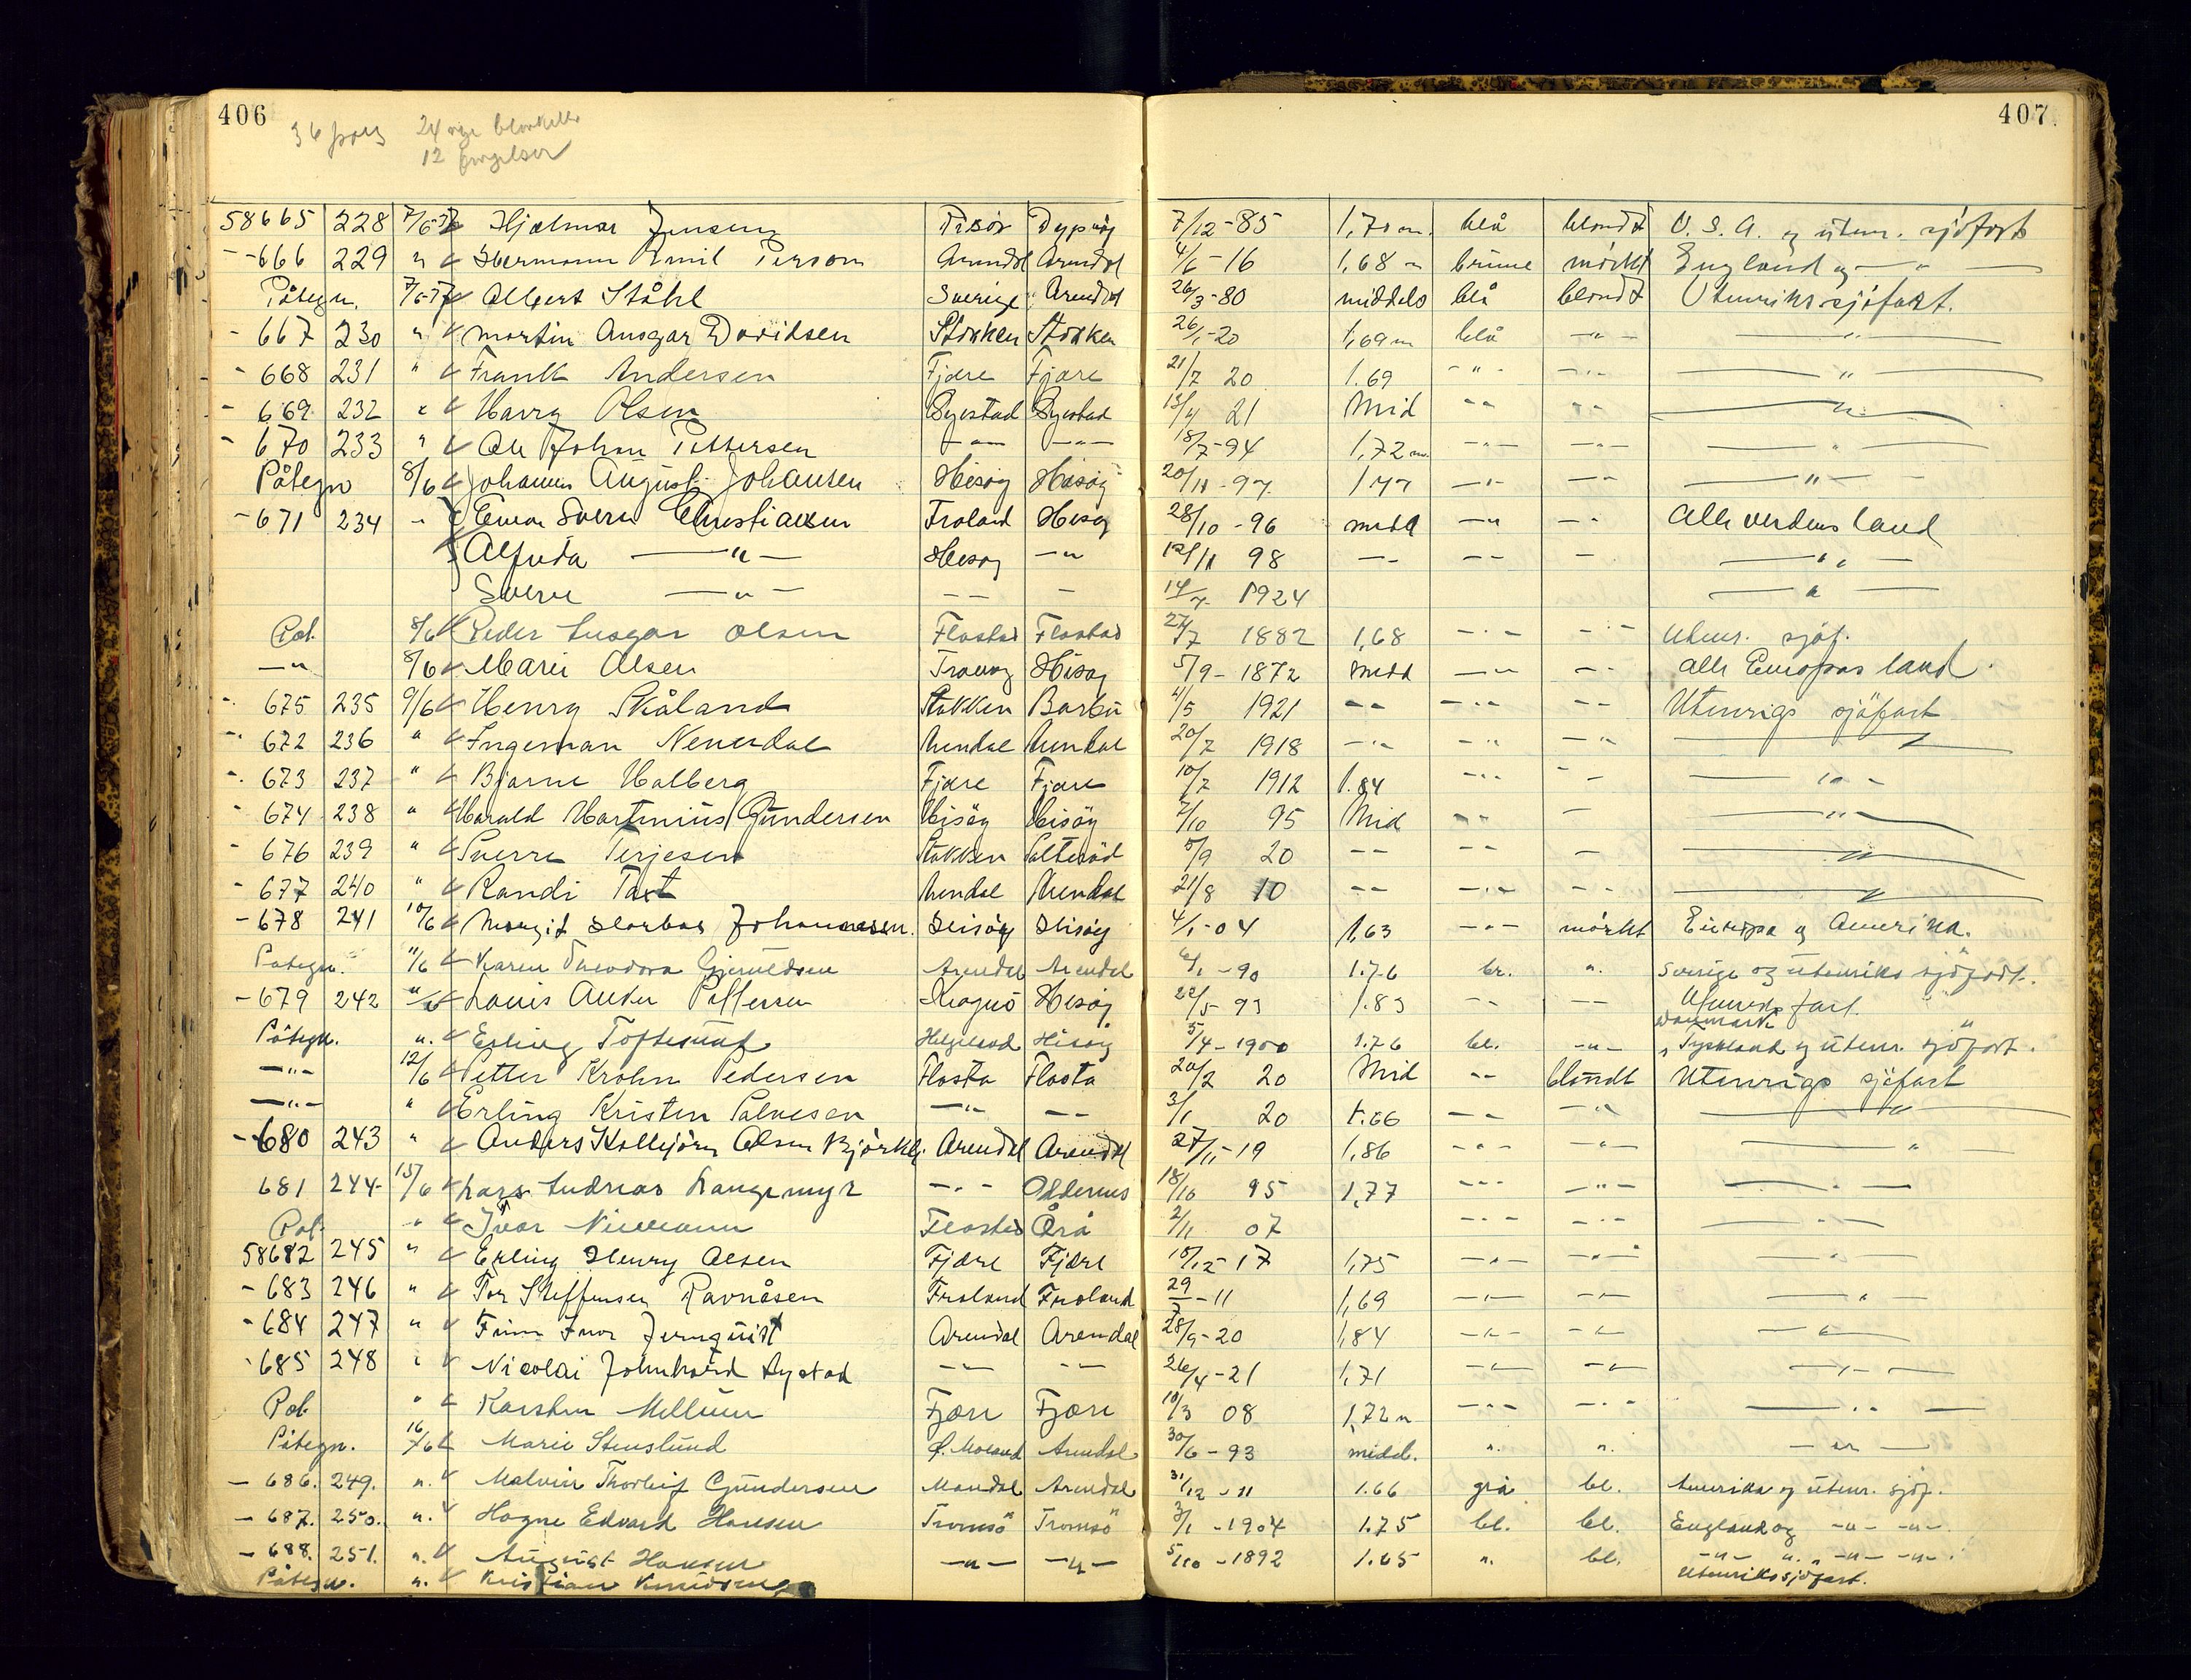 406
407
36
24
12
58665 228 7/6-37 Hjalmar Jensen Risör Dypvåg 7/12-85 1,70 m. blå blondt U.S.A. og utenr. sjöfart
-666 229 " Hermann Emil Person Arendal Arendal 4/6-16 1,68 m brune mörkt England og —"—
Påtegn. 7/6-37 Albert Ståhl Sverige Arendal 26/3-80 middels blå blondt Utenriks sjöfart.
-667 230 " Martin Ansgar Davidsen Stokken Stokken 26/1-20 1,69 m blå —"— —"—
-668 231 " Frank Andersen Fjære Fjære 21/7 20 1.69 —"— —"— —"—
-669 232 " Harry Olsen Öyestad Öyestad 13/4 21 Mid —"— —"— —"—
-670 233 " Ole Johan Pettersen —"— —"— 18/7-94 1,72 m. —"— —"— —"—
Påtegn 8/6 Johannes August Johansen Hisöy Hisöy 20/11-97 1,77 —"— —"— —"—
-671 234 " Einar Sverre Christiansen Froland Hisöy 28/10-96 midd —"— —"— Alle verdens land
Alfrida —"— Hisöy —"— 12/11 98 —"— —"— — —"—
Sverre —"— —"— — 14/7 1924 —"—
Påt. 8/6 Peder Ansgar Olsen Flostad Flostad 27/7 1882 1,68 —"— —"— Utenr. sjöf.
—"— 8/6 Marie Olsen Tromøy Hisøy 5/9-1872 midd —"— —"— alle Europas land.
-675 235 9/6 Henry Skåland Stokken Barbu 4/5 1921 —"— —"— —"— Utenrigs sjöfart
-672 236 " Ingeman Nenendal Arendal Arendal 20/7 1918 —"— —"— —"— —"—
-673 237 " Bjarne Halberg Fjære Fjære 10/7 1912 1.84 —"— —"— —"—
-674 238 " Harald Martinius Gundersen Hisöy Hisöy 2/10 95 Mid —"— — —"—
-676 239 " Sverre Terjesen Stokken Saltröd 5/9 20 —"— —"— — —"—
-677 240 " Randi Taxt Arendal Arendal 21/8 10 —"— —"— —"— —"—
-678 241 10/6 Margit Johannessen. Hisöy Hisöy 4/1-04 1,63 —"— mörkt Europa og Amerika.
Påtegn. 11/6 Karen Theodora Gjeruldsen Arendal Arendal 6/1-90 1.76 br. ". Sverige og utenriks sjöfart.
-679 242 11/6 Louis Pettersen Kragerö Hisöy 22/5-93 1.83 —"— —"— Utenriksfart.
Påtegn. ". Erling Toftesund Hisöy 5/4-1900 1.76 bl. —"— Danmark, Tyskland og utenr. sjöfart.
—"— 12/6 Petter Krohn Pedersen Flosta Flosta 20/2 20 Mid —"— blondt Utenrigs sjöfart
—"— " Erling Kristen Salvesen —"— —"— 3/1 20 1.66 —"— —"— —"—
-680 243 " Anders Kolbjörn Olsen Björkli. Arendal Arendal 27/11-19 1,86 —"— —"— —"—
681 244 15/6 Lars Andreas Langemyr —"— Oddernes 18/10 95 1,77 —"— —"— —"—
Påt. " Ivar Niemann Flostad Örå 2/11 07 —"— —"— —"—
58682 245 " Erling Henry Olsen Fjære Fjære 10/12-17 1,75 —"— —"— —"—
-683 246 " Tor Steffensen Ravnåsen Froland Froland 29/7-11 1,69 —"— —"— —"—
-684 247 " Finn Ivar Jernquist Arendal Arendal 28/9-20 1,84 —"— —"— —"—
-685 248 " Nicolai Johnhard Rystad —"— —"— 26/4-21 1,71 —"— —"— —"—
Påt. " Karsten Mellum Fjære Fjære 10/3 08 1,72 m —"— —"— —"—
Påtegn. 16/6 Marie Stenslund Ö. Moland Arendal 30/6-93 midd. ". ". —"—
-686. 249. ". Malvin Thorleif Gundersen Mandal Arendal 31/12-11 1.66 grå bl. Amerika og utenr. sjöf.
-687. 250. ". Hagne Edvard Hansen Tromsö Tromsö 3/1-1904 1.75 bl. bl. England og —"— —"—
-688. 251. ". August Hansen —"— —"— 5/10-1892 1.65 ". bl. —"— ". —"— —"—.
Påtegn. ". Kristian Knudsen Utenrikssjöfart.